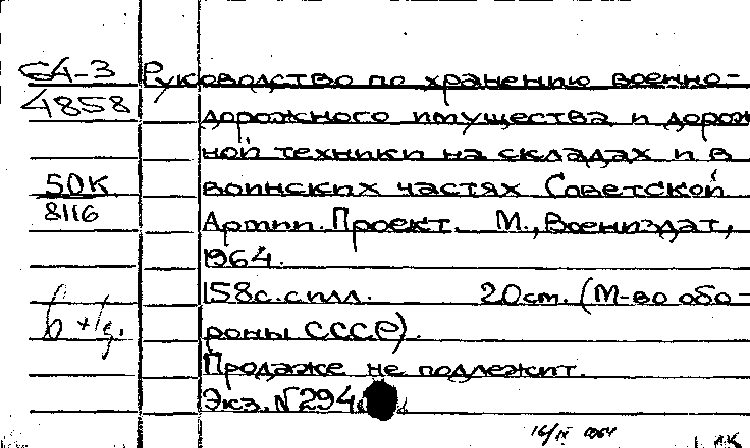 С4-3 Руководство по хранению военно-
4858 дорожного имущества и дорож
ной техники на складах и в
50К воинских частях Советской
8116 Армии. Проект. М., Воениздат,
1964.
158с. с илл. 20см. (М-во обо-
роны СССР).
Продаже не подлежит.
Экз. №294
16/IX 1964